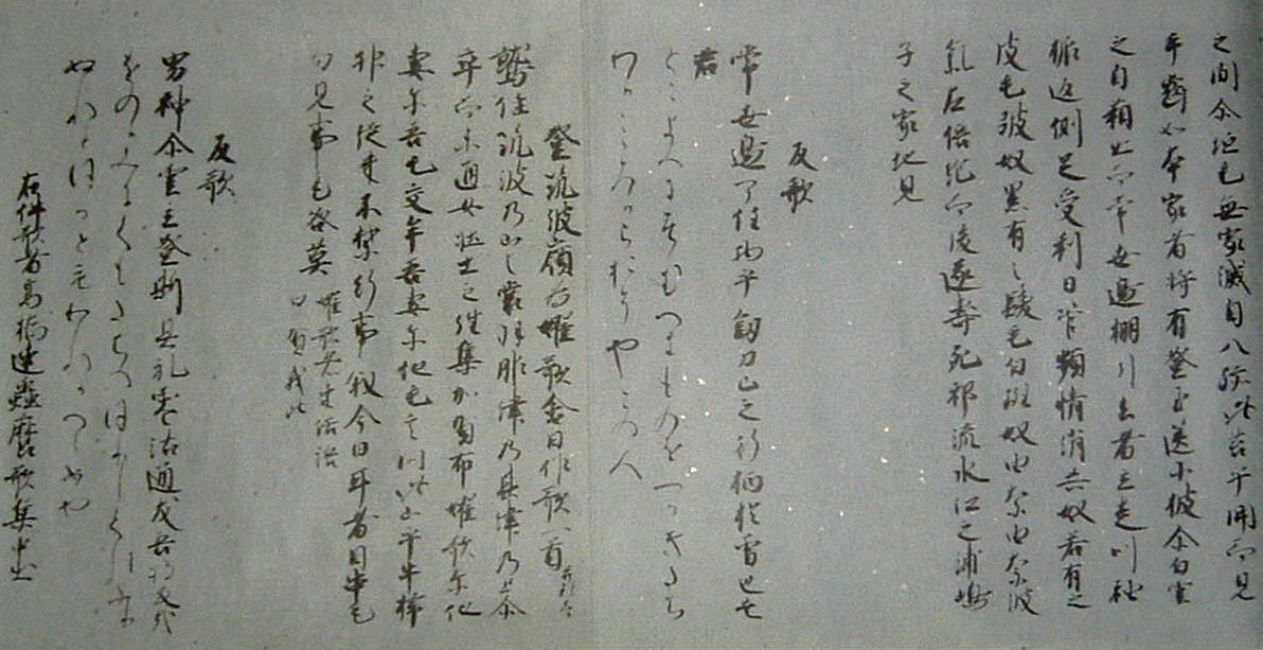 之間尓垣毛無家滅目八跡此筥乎開而見
手齒如本家者将有登玉篋小披尓白雲
之自箱出而常世邊棚引去者立走叫袖
振返側足受利日管頓情消失奴若有之
皮毛皺奴黒有之髪毛白斑奴由奈由奈波
氣左倍絶而後遂壽死祁流水江之浦嶋
子之家地見
反歌
常世邊可住物乎釼刀己之行柄於曽也是
君
とこよへにすむへきものをつるきたち
わかこころからおそやこの人
登筑波嶺為嬥歌會日作歌一首 并短歌
鷲住筑波乃山之裳羽服津乃其津乃上尓
率而未通女壮士之徃集加賀布嬥歌尓他
妻尓吾毛交牟吾妻尓他毛言問此山乎牛掃
神之従来不禁行事叙今日耳者目串毛
勿見事毛咎莫 嬥歌者東俗語
曰賀我比
反歌
男神尓雲立登斯具礼零沾通友吾将反哉
をのかみにくもたちのほりしくれふり
ぬれとほるともわれかへらめや
右件歌者高橋連蟲麿歌集中出